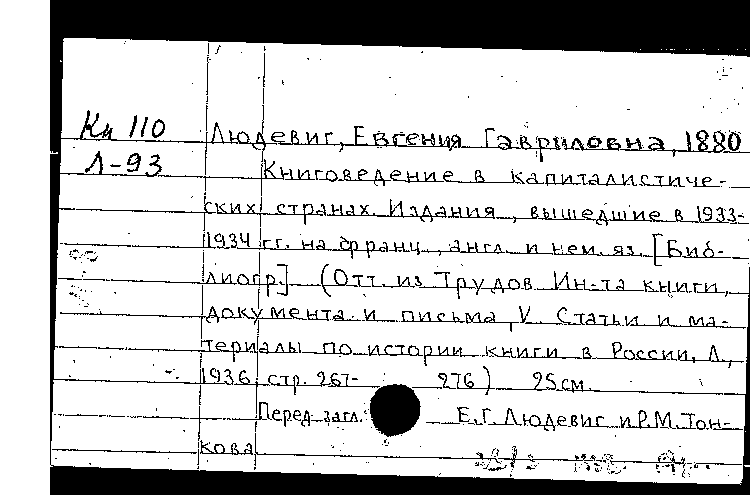 Кн 110 Людевиг, Евгения Гавриловна, 1880
Л-93 Книговедение в капиталистиче-
ских странах. Издания, вышедшие в 1933-
1934 гг. на франц., англ. и нем. яз. [Биб-
лиогр.] (Отт. из Трудов Ин-та книги,
документа и письма, V. Статьи и ма-
териалы по истории книги в России. Л.,
1936, стр. 267- 276) 25 см.
Перед загл. Е.Г. Людевиг и Р.М. Тон-
кова